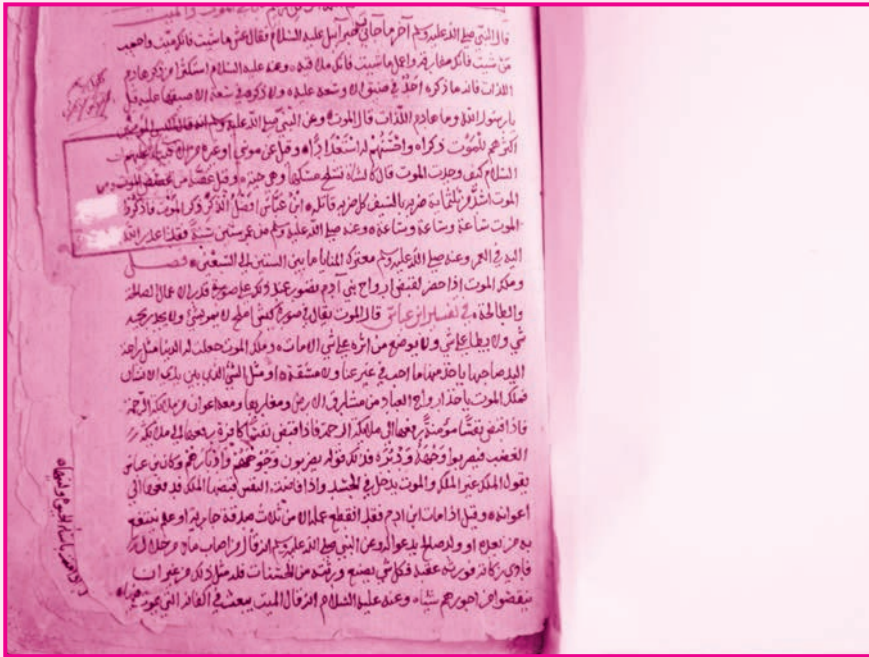 قال النبي صلى الله عليه وسلم آخر ما جاءني جبرآيل عليه السلام فقال عش ما شيت فانك ميت واحبب
من شيت فانك مفارقه واعمل ما شيت فانك ملاقيه وعنه عليه السلام استكثروا من ذكر هادم
اللذات فانه ما ذكره احد في ضيق الا وسعه عليه ولا ذكره في سعة الا ضيقها عليه قيل
يا رسول الله وما هادم اللذات قال الموت وعن النبي صلى الله عليه وسلم
اكثرهم للموت ذكرا واحسنهم له استعدادا وقيل عن موسى
السلام كيف وجدت الموت قال كالشاة تسلخ وهي حية وقيل
الموت اشد من ثلثماية ضربة بالسيف كل ضربة قاتلة ابن عباس افضل الذكر ذكر الموت فاذكروا
الموت ساعة وساعة وساعة وعنه صلى الله عليه وسلم من عمر ستين سنة فقد اعذر الله
اليه في العمر وعنه صلى الله عليه وسلم معترك المنايا ما بين الستين الى السبعين فصل
وملك الموت اذا حضر لقبض ارواح بني آدم تصور عند ذلك على صورة قدر الاعمال الصالحة
والطالحة في تفسير ابن عباس قال الموت يقال في صورة كبش املح لا يمر بشي ولا يجد ريحه
شي ولا يطا على شي ولا يوضع من اثره على شي الا مات وملك الموت جعلت له الدنيا مثل راحة
اليد صاحبها ياخذ منها ما احب في غير عنا ولا مشقة او مثل الشي الذي بين يدي الانسان
فملك الموت ياخذ ارواح العباد من مشارق الارض ومغاربها ومعه اعوان من ملايكة الرحمة
فاذا قبض نفسا مؤمنة رفعها الى ملايكة الرحمة فاذا قبض نفسا كافرة رفعها الى ملايكة
الغضب فيضربوا وجهه ودبره فذلك قوله يضربون وجوههم وادبارهم وكان ابن عباس
يقول الملك غير الملك والموت يدخل في الجسد واذا فاضت النفس قبضها الملك فدفعها الى
اعوانه وقيل اذا مات ابن ادم فقد انقطع عمله الا من ثلاث صدقة جارية او علم ينتفع
به من بعده او ولد صالح يدعو له وعن النبي صلى الله عليه وسلم انه قال من اصاب مالا من حلال
فادى زكاته فورثه عقبه فكل شي يصنع ورثته من الحسنات فله مثل ذلك من غير ان
ينقصوا من اجورهم شيئا وعنه عليه السلام انه قال الميت يبعث في اكفانه التي